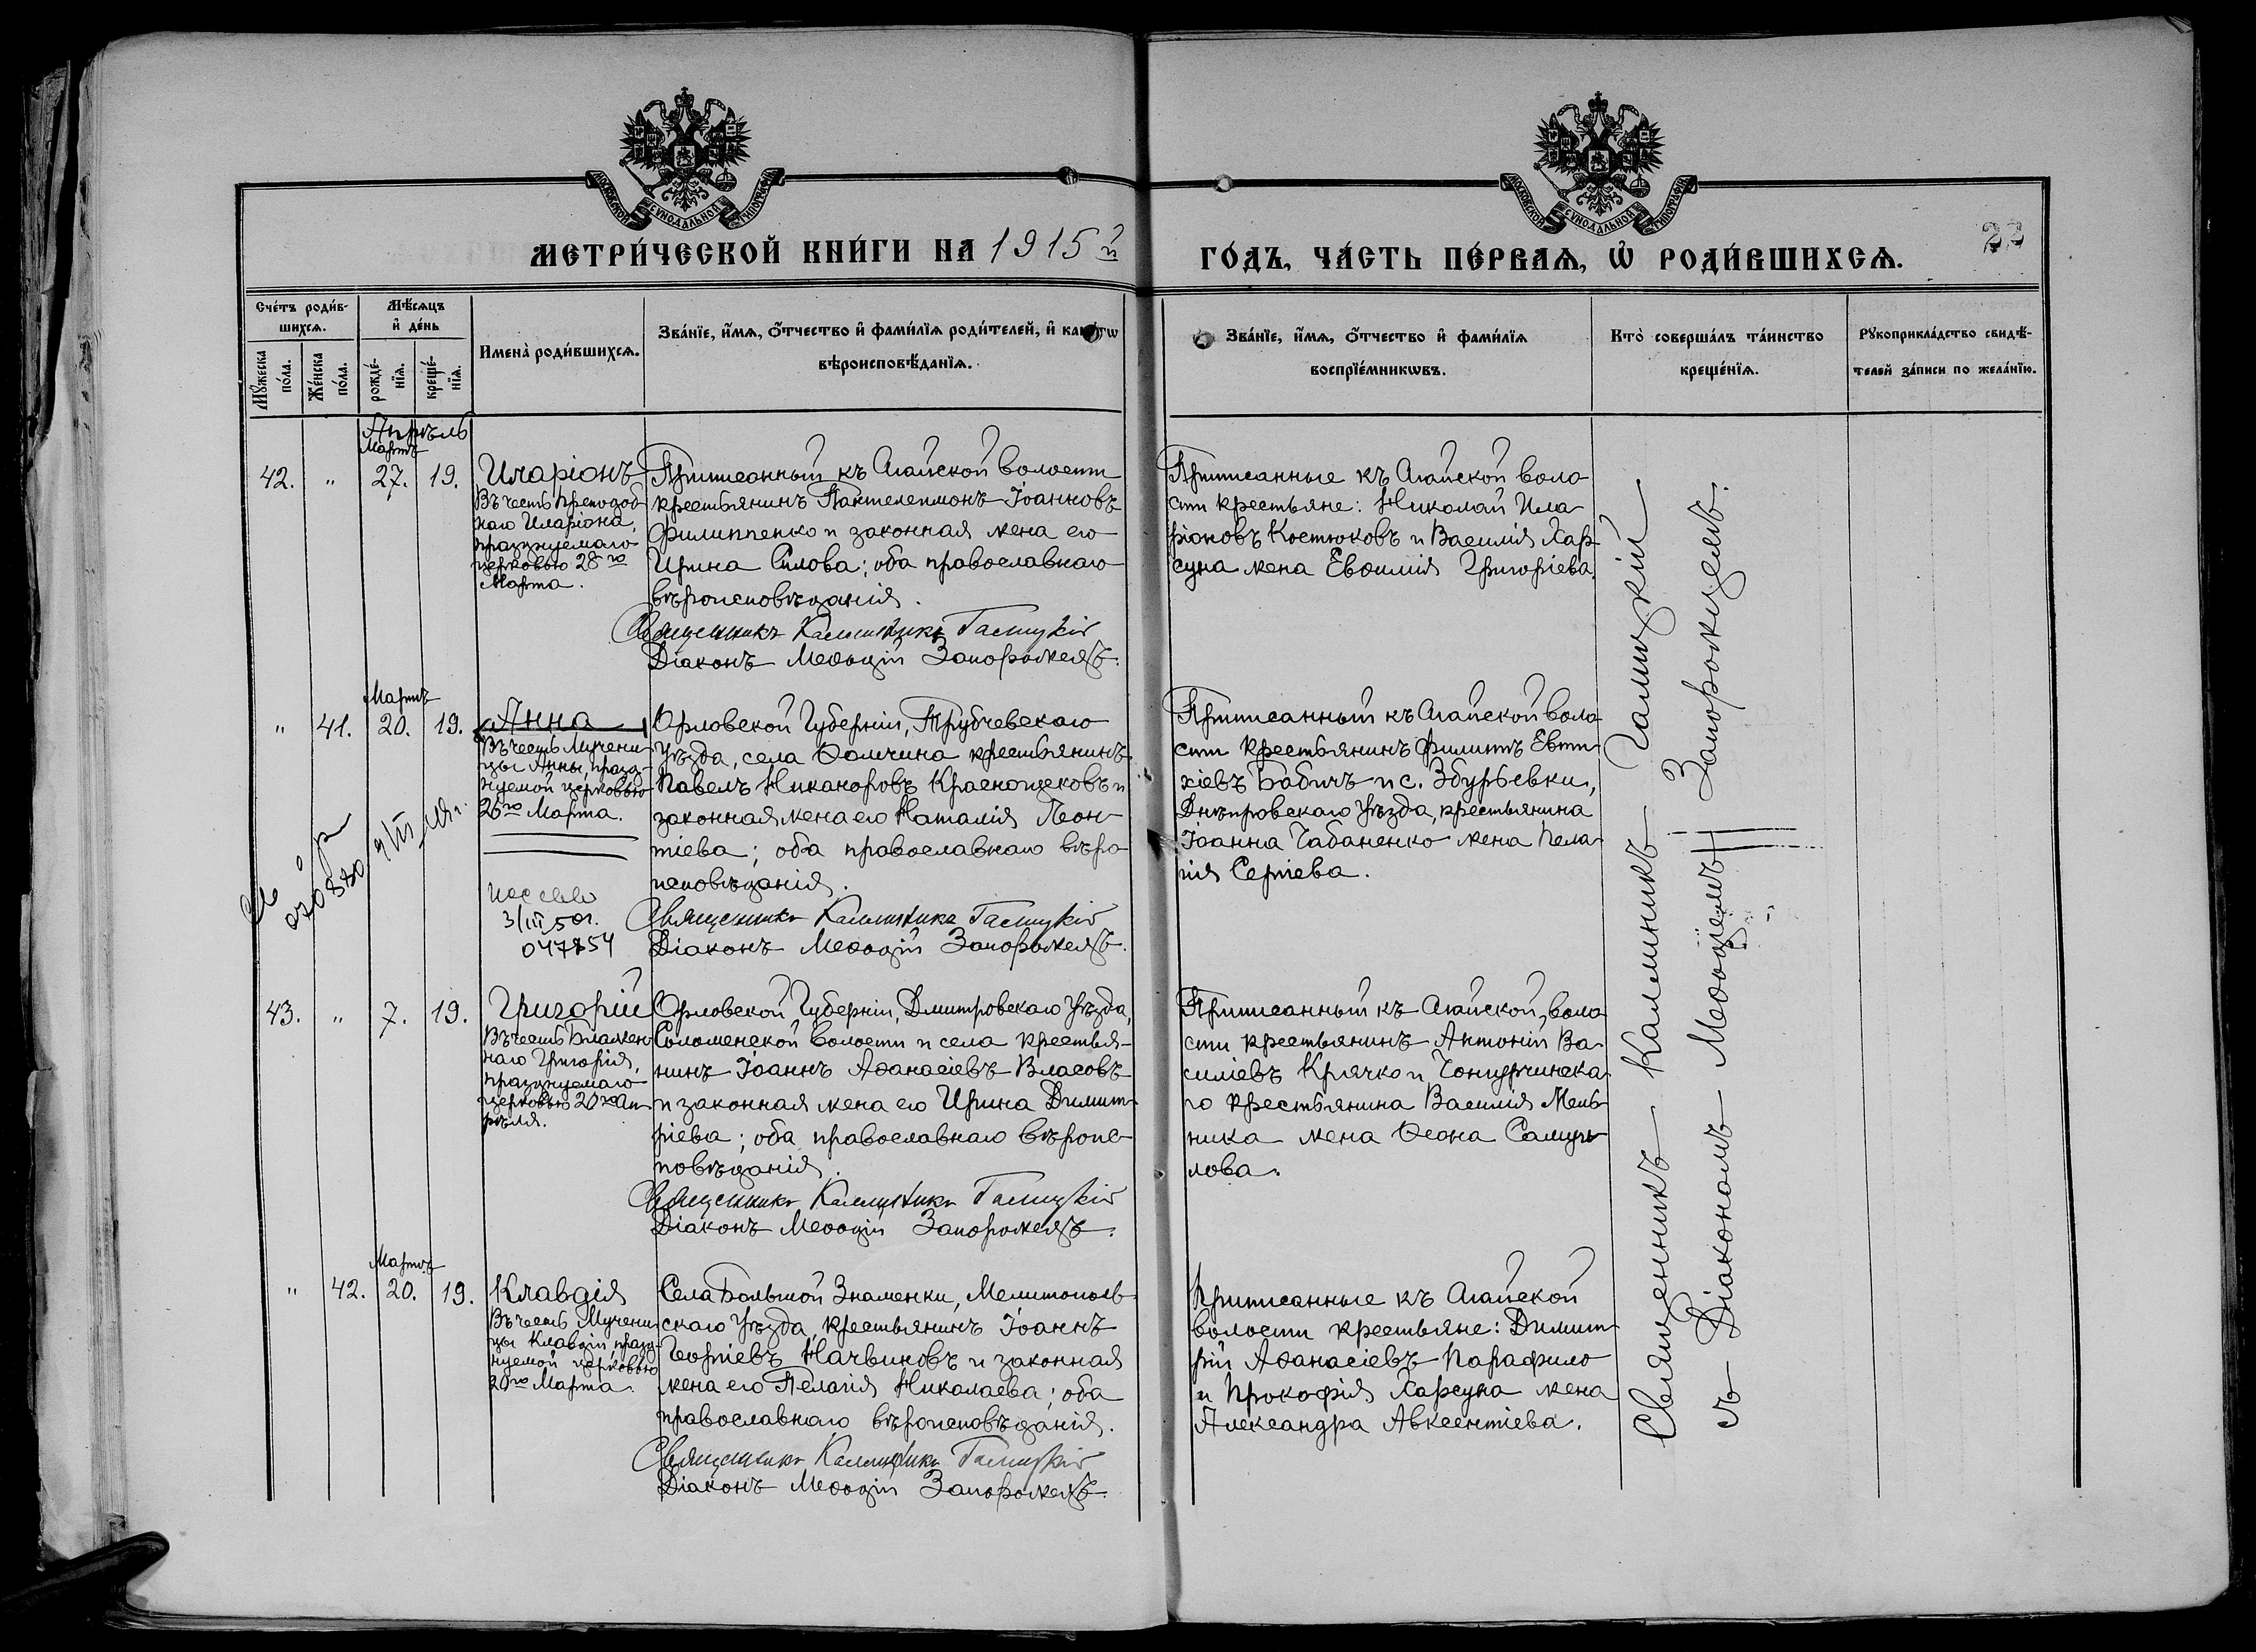 МОСКОВСКОЙ СѴНОДАЛЬНОЙ ТИПОГРАФІИ
МОСКОВСКОЙ СѴНОДАЛЬНОЙ ТИПОГРАФІИ
МЕТРИ́ЧЕСКОЙ КНИ́ГИ НА 1915й
ГО́ДЪ, ЧА́СТЬ ПЕ́РВАѦ, Ѡ҆ РОДИ́ВШИХСѦ.
22
Сче́тъ роди́в-
шихсѧ.
Мꙋ́жеска
по́ла.
Же́нска
по́ла.
Мѣ́сѧцъ
и҆ де́нь
рожде́-
нїѧ.
креще́-
нїѧ.
Имена̀ роди́вшихсѧ.
Зва́нїе, и҆́мѧ, ѻ҆́тчество и҆ фами́лїѧ роди́телей, и҆
вѣроисповѣ́данїѧ.
Зва́нїе, и҆́мѧ, ѻ҆́тчество и҆ фами́лїѧ
воспрїе́мникѡвъ.
Кто̀ соверша́лъ та́инство
креще́нїѧ.
Рꙋкоприкла́дство свидѣ́-
телей за́писи по жела́нїю.
Апрѣль
Мартъ
42. " 27. 19.
Иларіонъ
Въ честь Преподоб
наго Иларіона,
празднуемаго
церковью 28го
Марта.
Приписанный къ Агайской волости
крестьянинъ Пантелеимонъ Іоанновъ
Филиппенко и законная жена его
Ирина Силова; оба православнаго
вѣроисповѣданія.
Священникъ Каллиникъ Галицкій
Діаконъ Меѳодій Запорожецъ.
Приписанные къ Агайской воло
сти крестьяне: Николай Ила
ріоновъ Костюковъ и Василія Хар
суна жена Евѳимія Григоріева.
Мартъ
" 41. 20. 19.
Анна
Въ честь Мучени-
цы Анны, празд-
нуемой церковью
26го Марта.
3/III 50г.
047754
Орловской Губерніи, Трубчевскаго
Уѣзда, села Ѳомчина крестьянинъ
Павелъ Никаноровъ Краснощековъ и
законная жена его Наталія Леон-
тіева; оба православнаго вѣро
исповѣданія.
Священникъ Каллиникъ Галицкій
Діаконъ Меѳодій Запорожецъ.
Приписанный къ Агайской воло
сти крестьянинъ Филиппъ Евти-
хіевъ Бабичъ и с. Збурьевки,
Днѣпровскаго Уѣзда, крестьянина
Іоанна Чабаненко жена Пела-
гія Сергіева.
43. " 7. 19.
Григорій
Въ честь Блажен
наго Григорія,
празднуемаго
церковью 20го Ап-
рѣля.
Орловской Губерніи, Дмитровскаго Уѣзда,
Соломенской волости и села крестья-
нинъ Іоаннъ Аѳанасіевъ Власовъ
и законная жена его Ирина Димит-
ріева; оба православнаго вѣроис-
повѣданія.
Священникъ Каллиникъ Галицкій
Діаконъ Меѳодій Запорожецъ.
Приписанный къ Агайской воло
сти крестьянинъ Антоній Ва-
силіевъ Крячко и Чонгурчинска-
го крестьянина Василія Мель-
ника жена Ѳеона Самуи-
лова.
Мартъ
" 42. 20. 19.
Клавдія
Въ честь Мучени
цы Клавдіи празд-
нуемой церковью
20го Марта.
Села Большой Знаменки, Мелитополь-
скаго Уѣзда, крестьянинъ Іоаннъ
Георгіевъ Начвиновъ и законная
жена его Пелагія Николаева; оба
православнаго вѣроисповѣданія.
Священникъ Каллиникъ Галицкій
Діаконъ Меѳодій Запорожецъ.
Приписанные къ Агайской
волости крестьяне: Димит-
рій Аѳанасіевъ Парафило
и Прокофія Харсуна жена
Александра Авксентіева.
Священникъ Каллиникъ Галицкій
съ Діакономъ Меѳодіемъ Запорожцемъ.